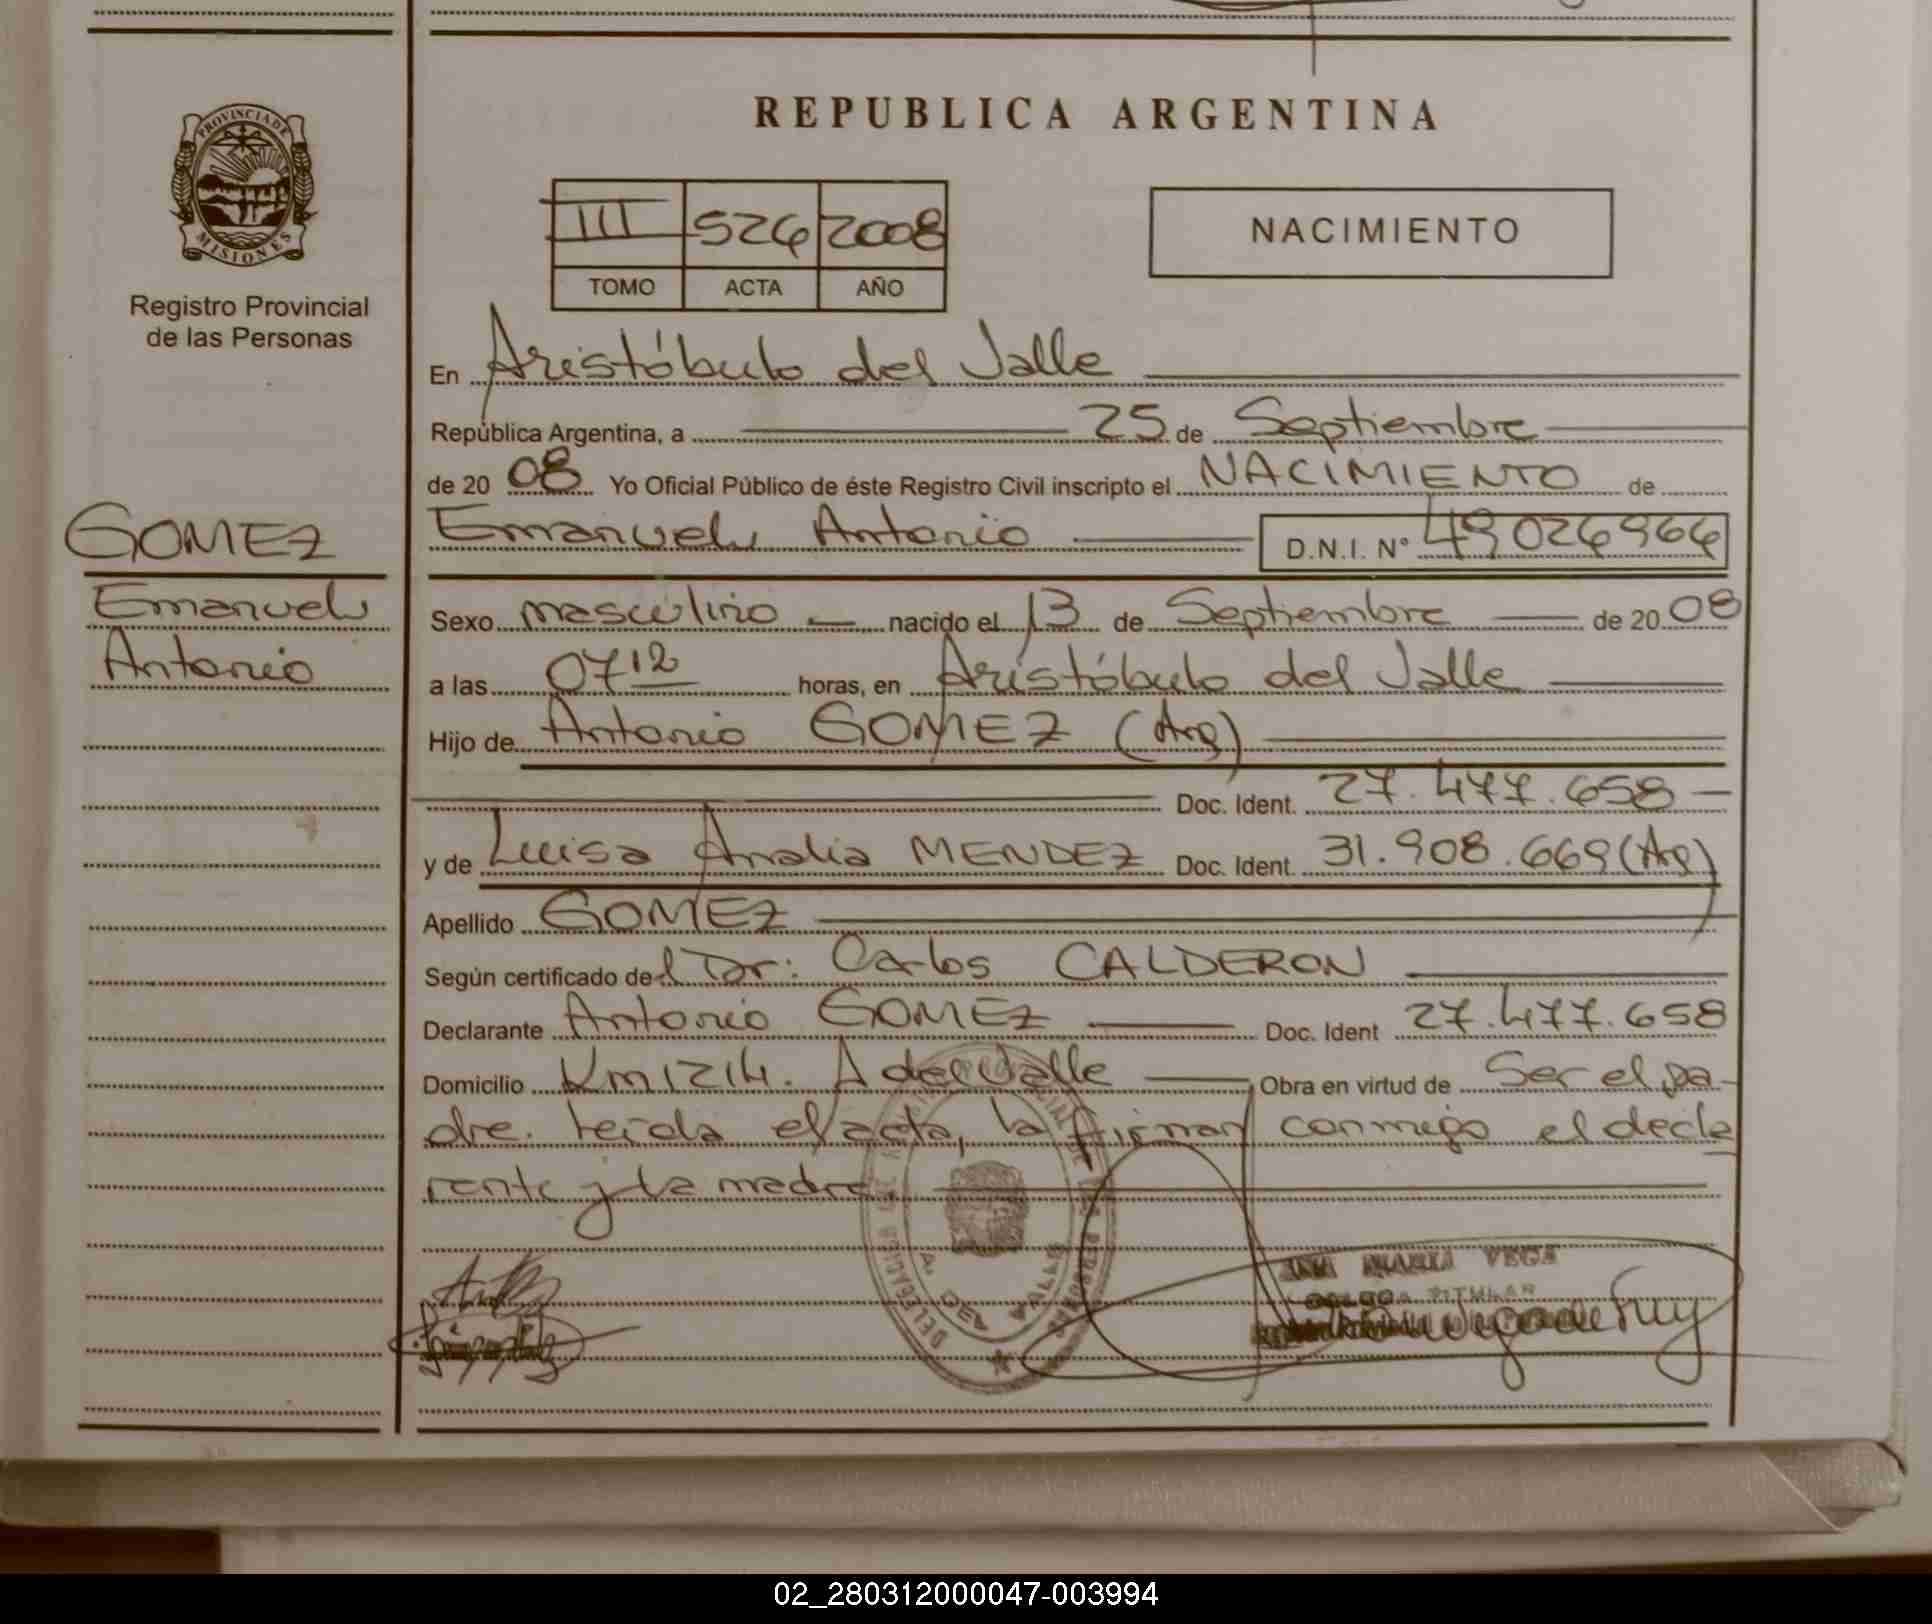 PROVINCIA DE
MISIONES
Registro Provincial
de las Personas
GOMEZ
Emanuel
Antonio
REPUBLICA ARGENTINA
III 526 2008
TOMO ACTA AÑO
NACIMIENTO
En Aristóbulo del Valle
República Argentina, a 25 de Septiembre
de 2008 Yo Oficial Público de éste Registro Civil inscripto el NACIMIENTO de
Emanuel Antonio D.N.I. N° 49026966
Sexo masculino nacido el 13 de Septiembre de 2008
a las 07 12 horas, en Aristóbulo del Valle
Hijo de Antonio GOMEZ (Arg)
Doc. Ident. 27.477.658
y de Luisa Analia MENDEZ Doc. Ident. 31.908.669 (Arg)
Apellido GOMEZ
Según certificado del Dr: Carlos CALDERON
Declarante Antonio GOMEZ Doc. Ident 27.477.658
Domicilio Km 1214. A del Valle Obra en virtud de Ser el pa-
dre. leida el acta, la firman conmigo el decla
rante y la madre.
DELEGACION A. DEL VALLE
ANA MARIA VEGA
TITULAR
02_280312000047-003994